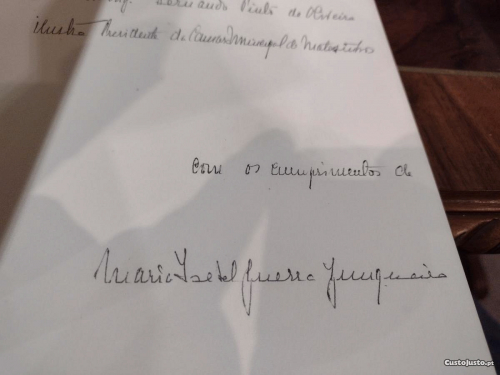 Eng. Fernando Pinto de Oliveira
ilustre Presidente da Camara Municipal de Matosinhos
com os cumprimentos de
Maria Isabel Guerra Junqueiro
CustoJusto.pt